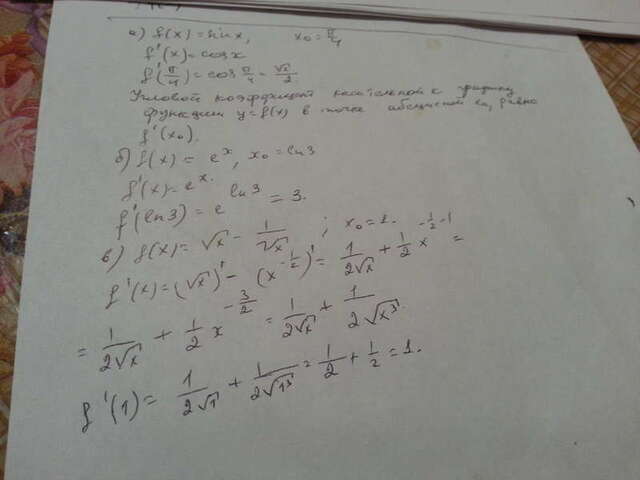 а) f(x) = sin x, x₀ = π/4
f'(x) = cos x
f'(π/4) = cos π/4 = √2/2
Угловой коэффициент касательной к графику
функции y = f(x) в точке абсциссой x₀, равно
f'(x₀).
б) f(x) = eˣ, x₀ = ln3
f'(x) = eˣ.
f'(ln3) = e^(ln3) = 3.
в) f(x) = √x - 1/√x ; x₀ = 1.
f'(x) = (√x)' - (x^(-1/2))' = 1/(2√x) + 1/2 x^(-1/2-1) =
= 1/(2√x) + 1/2 x^(-3/2) = 1/(2√x) + 1/(2√x³).
f'(1) = 1/(2√1) + 1/(2√1³) = 1/2 + 1/2 = 1.